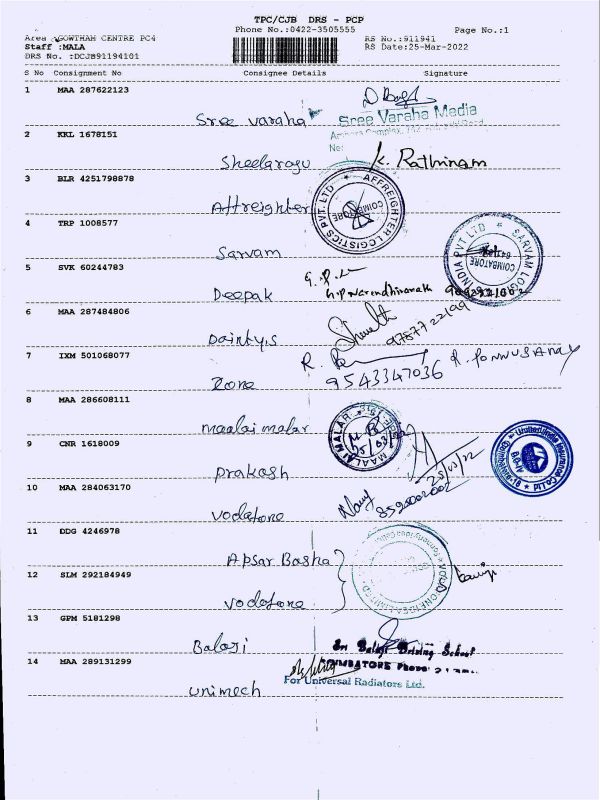 TPC/CJB DRS - PCP
Phone No.:0422-3505555 Page No.:1
Area :GOWTHAM CENTRE PC4 RS No.:911941
Staff :MALA RS Date:25-Mar-2022
DRS No. :DCJB91194101
S No Consignment No Consignee Details Signature
1 MAA 287622123
Sree varaha Sree Varaha Media
2 KKL 1678151
Sheelaragu K. Rathinam
3 BLR 4251798878
Affreighter AFFREIGHTER LOGISTICS PVT. LTD COIMBATORE
4 TRP 1008577
Sarvam SARVAM LOG INDIA PVT LTD COIMBATORE
5 SVK 60244783
Deepak
6 MAA 287484806
Daintyis 9787722199
7 IXM 501068077
Zone 9543347036 R. PONNUSAMY
8 MAA 286608111
maalai malar MAALAI MALAR
9 CNR 1618009
prakash 25/03/22
10 MAA 284063170
vodafone
11 DDG 4246978
Apsar Basha
12 SLM 292184949
vodafone
13 GPM 5181298
Balaji Sri Balaji Driving School
14 MAA 289131299 COIMBATORE Phone
unimech For Universal Radiators Ltd.